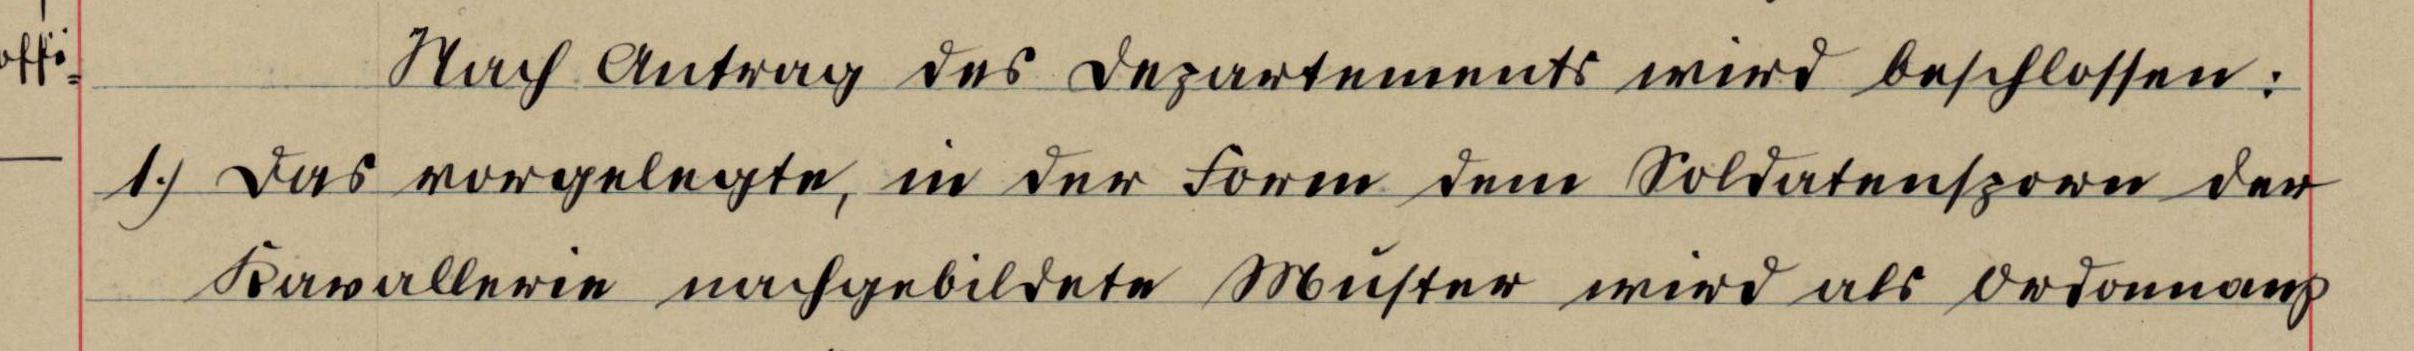 offi=
Nach Antrag des Departements wird beschlossen:
1.) Das vorgelegte, in der Form dem Soldatensporn der
Kavallerie nachgebildete Muster wird als Ordonnanz